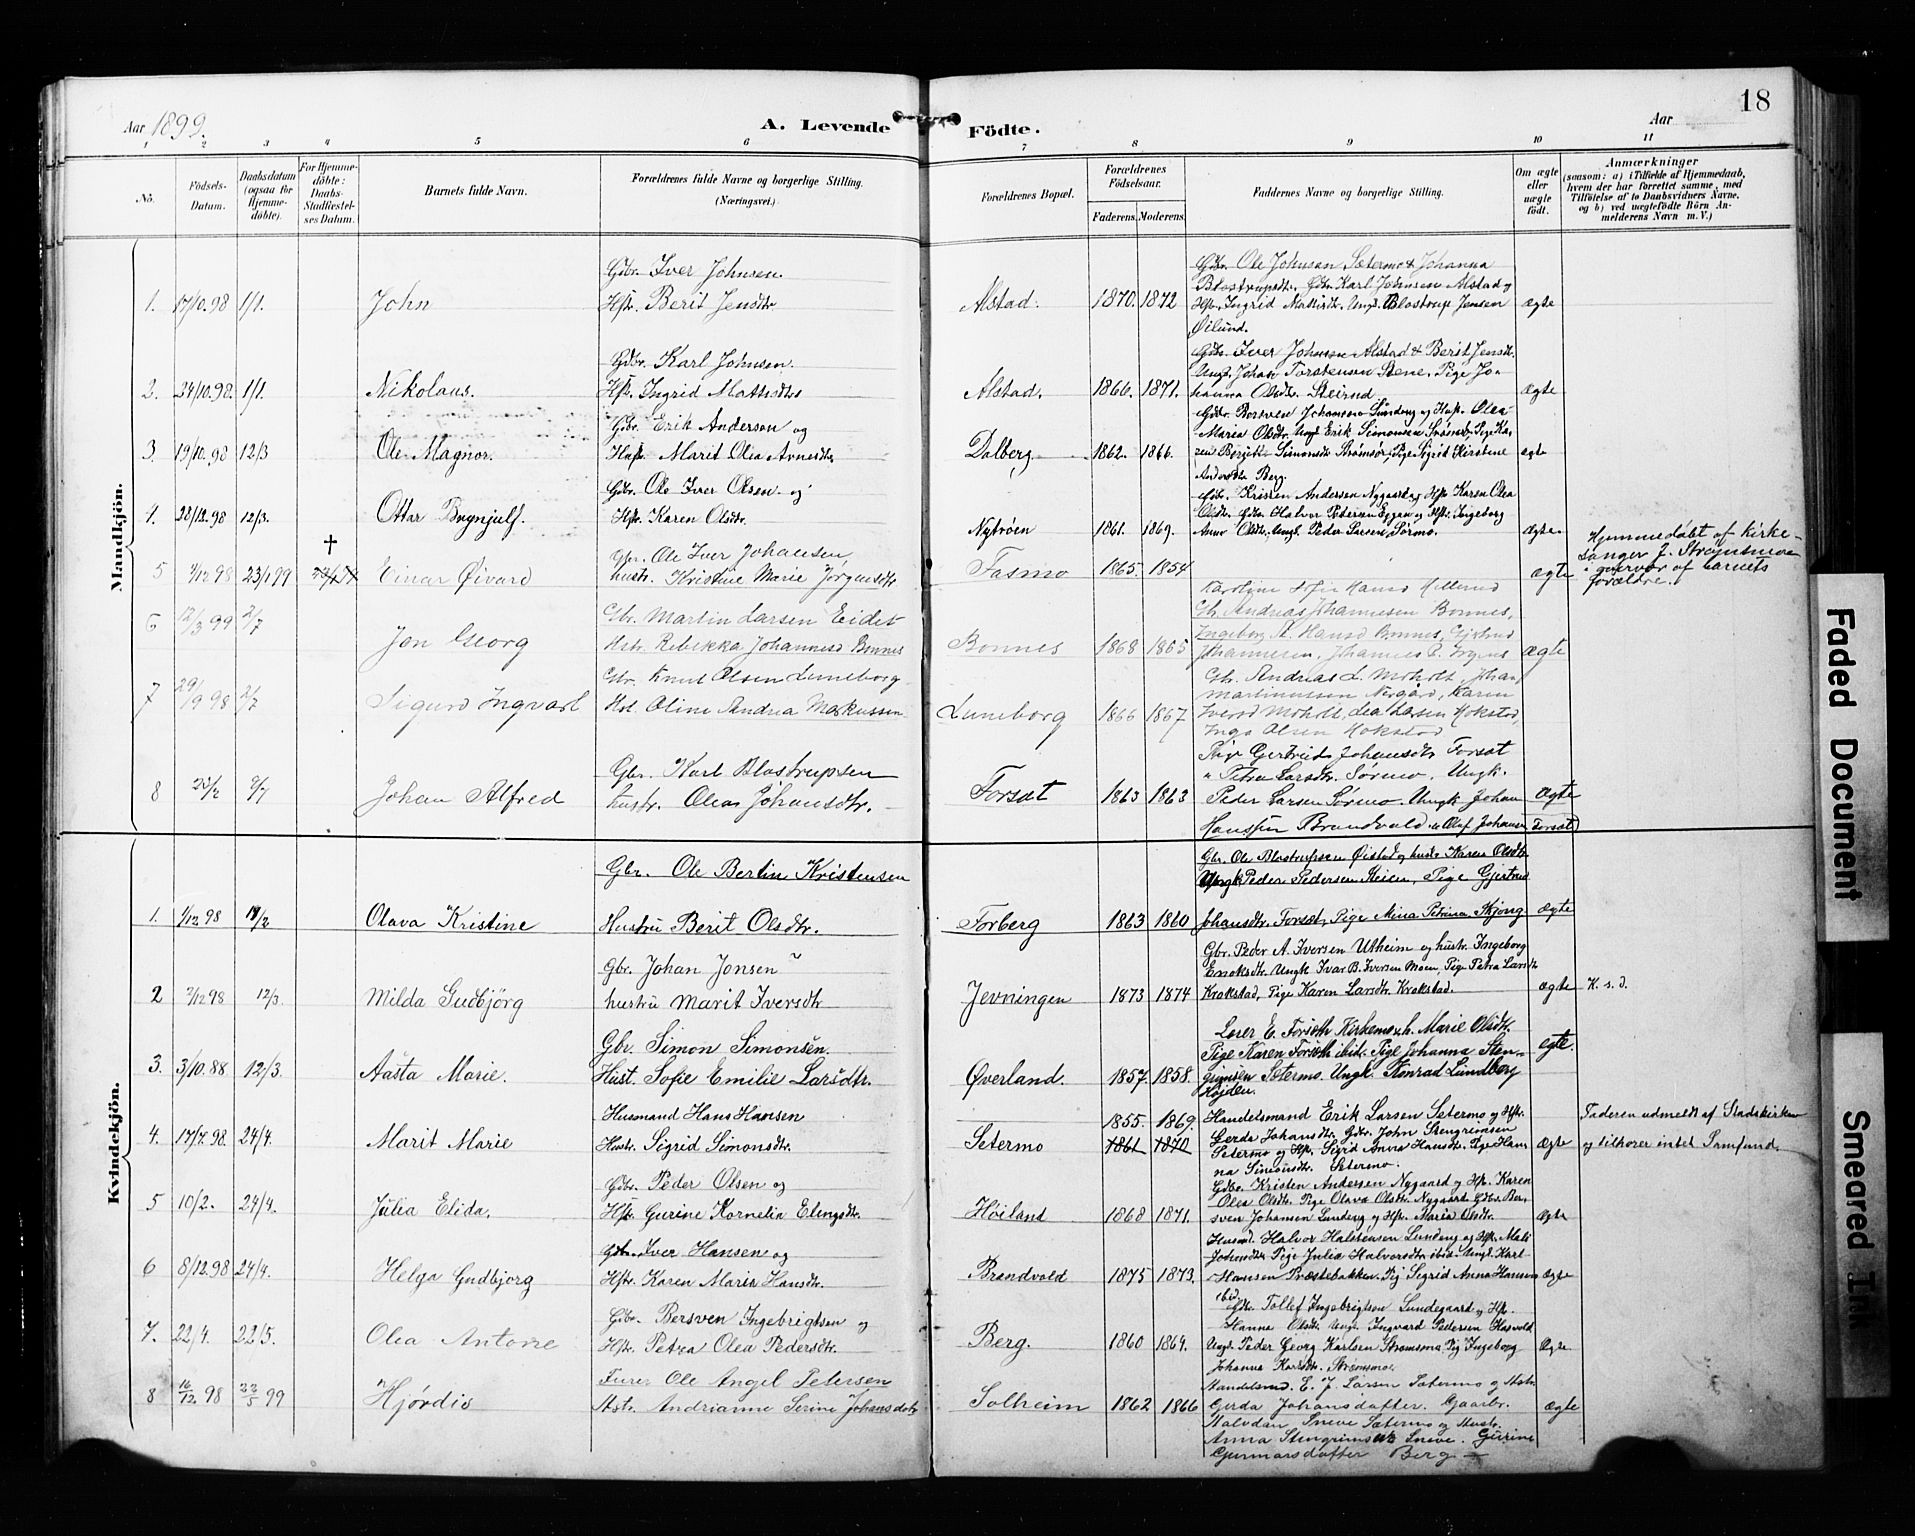 Aar 1899.
A. Levende Födte.
Aar
18
1 2 3 4 5 6 7 8 9 10 11
No.
Födsels-Datum.
Daabsdatum (ogsaa for Hjemme-döbte).
For Hjemme-döbte: Daabs-Stadfæstel-ses Datum.
Barnets fulde Navn.
Forældrenes fulde Navne og borgerlige Stilling. (Næringsvei.)
Forældrenes Bopæl.
Forældrenes Födselsaar.
Faderens. Moderens.
Faddernes Navne og borgerlige Stilling.
Om ægte eller uægte födt.
Anmærkninger
(saasom: a) i Tilfælde af Hjemmedaab, hvem der har forrettet samme, med Tilföielse af to Daabsvidners Navne, og b) ved uægtefödte Börn An-melderens Navn m. V.)
Mandkjön.
Gdbr. Iver Johnsen.
1. 17/10.98 1/1. John Hstr. Berit Jensdtr. Alstad. 1870. 1872 ægte
Gdbr. Ole Johnsen Sætermo & Johanna
Blostrupsdtr. Gdbr. Karl Johnsen Alstad og
Hstr. Ingrid Mattisdtr. Ungk. Blostrup Jensen
Öilund.
Gdbr. Karl Johnsen.
2. 24/10.98. 1/1. Nikolaus. Hstr. Ingrid Mattisdtr Alstad. 1866. 1871. ægte
Gdbr. Iver Johnsen Alstad & Berit Jensdtr.
Ungk. Johan Torstensen Stene, Pige Jo-
hanna Olsdtr.
Gdbr. Erik Anderson og
3. 19/10.98 12/3 Ole Magnor. Hustr. Marit Olea Arnesdtr. Dalberg 1862. 1866. ægte
Gdbr. Bersven Johansen Lundberg og Hustr. Olea
Maria Olsdtr. Ungk. Erik Simonsen Strömsör, Pige Ka-
ren Bergitte Simonsdtr Strömsör, Pige Sigrid Kirstine
Andersdtr Berg.
Gdbr. Ole Iver Olsen og
4. 28/12.98 12/3. Ottar Brynjulf. Hstr. Karen Olsdtr. Nytröen 1861. 1869. ægte
Gdbr. Kristen Andersen Nygaard og Hstr Karen Olea
Olsdtr. Gdbr. Halvor Petersen Eggen og Hstr. Ingeborg
Anna Olsdtr. Ungk. Peder Larsen Sörmo.
Gbr. Ole Iver Johansen,
†
5 9/12 98 23/1 99 Einar Øivard hustr. Kristine Marie Jørgensdtr Fasmo 1865. 1854 ægte
Hjemmedøbt af Kirke-
sanger J. Strømsmoe
i overvær af barnets
forældre.
Gbr. Martin Larsen Eidet
6 12/3 99 2/7 Jon Georg Hstr. Rebekka Johannesd Bonnes Bonnes 1868 1865 ægte
Karoline Sofie Hansd
Gb. Andreas Johannesen Bonnes,
Ingeborg A. Hansd Bonnes, Gjertrud
Johannesen, Johannes P.
Gbr. Knut Olsen Luneborg
7 29/9 98 2/7 Sigurd Ingvart Hst. Oline Andrea Markussen Luneborg 1866 1867
Gb. Andreas L. Moholt, Johan
Martinussen Nergård, Karen
Iversd Moholt, Lea Larsen Hokstad,
Inga Olsen Hokstad
Gbr. Karl Blostrupsen
8 2/7 Johan Alfred hustr. Olea Johansdtr. Forsæt 1863 1863 Ægte
Pige Gertrud Johansdtr Forsæt
" Petra Larsdtr. Sørmo. Ungk.
Peder Larsen Sørmo. Ungk Johan
Hanssen Brandvold. " Olaf Johansen (Forsæt)
Kvindekjön.
Gbr. Ole Bertin Kristensen
1. 1/12 98 19/2 Olava Kristine Hustru Berit Olsdtr. Forberg 1863 1860 ægte
Gbr. Ole Blostrupsen Øistad og hustr Karen Olsdtr
Ungk Peder Pedersen Steien, Pige Gjertrud
Johansdtr. Forsæt, Pige Mina Petrina Skjong
Gbr. Johan Jonsen
2 2/12 98 12/3. Milda Gudbjörg hustru Marit Iversdtr Jevningen 1873 1874 ægte K. s. d.
Gbr. Peder A. Iversen Utheim og hustr. Ingeborg
Enoksdtr. Ungk Ivar B. Iversen Moen, Pige Petra Larsdtr
Krokstad, Pige Karen Larsdtr. Krokstad.
Gbr. Simon Simonsen.
3. 3/10.88 12/3. Aasta Marie. Hust. Sofie Emilie Larsdtr. Øverland. 1857. 1858. ægte.
Lærer E. Forseth Kirkemo & h. Marie Olsdtr.
Pige Karen Forseth ibid. Pige Johanna Sten-
grimsen Sætermo. Ungk. Konrad Lundberg
Højden.
Husmand Hans Hansen
4. 17/7.98. 24/4. Marit Marie Hustr. Sigrid Simonsdtr. Setermo 1855. 1869. 1861 1870 Ægte
Handelsmand Erik Larsen Setermo og Hstr.
Gerda Johansdtr. Gdbr. John Stengrimsen
Setermo og Hstr. Sigrid Anna Hansdtr. Pige Han-
na Simonsdtr. Setermo.
Faderen udmeldt af Statskirken
og tilhører intet Samfund.
Gdbr. Peder Olsen og
5 10/2. 24/4. Julia Elida. Hstr. Gurine Kornelia Elingsdtr. Høiland 1868 1871. Ægte
Gdbr. Kristen Andersen Nygaard og Hstr. Karen
Olea Olsdtr. Pige Olava Olsdtr. Nygaard. Gdbr. Ber-
sven Johansen Lundberg og Hstr. Maria Olsdtr.
Gdbr. Iver Hansen og
6 8/12.98 24/4. Helga Gudbjorg Hstr. Karen Maria Hansdtr. Brandvold 1875 1873. Ægte
Husmd. Halvor Halstensen Lundeng og Hstr. Mali
Johnsdtr. Pige Julia Halvorsdtr ibid. Ungk. Karl
Hansen Præstebakken. Pig Sigrid Anna Hansen
ibid.
Gdbr. Bersven Ingebrigtsen og
7. 22/4. 22/5. Olea Antone Hstr. Petra Olea Pedersdtr. Berg. 1860 1869. Ægte
Gdbr. Tollef Ingebrigtsen Lundegaard og Hstr.
Hanna Olsdtr. Ungk. Ingvard Pedersen Hasvold
Ungk. Peder Georg Karlsen Strømsmo. Pig Ingeborg
Johanna Karlsdtr. Strømsmo.
Furer Ole Angel Petersen
8 16/12 98 22/5 99 Hjördis Hstr. Andrianne Serine Johansdotr Solheim 1862 1866 ægte
Handelsmd. E. J. Larsen Sætermo og Hstr.
Gerda Johansdatter. Gaardbr.
Halvdan Sneve Sætermo og Hustr.
Anna Stengrimsen Sneve. Gurine
Gunnarsdatter Berg
Faded Document
Smeared Ink